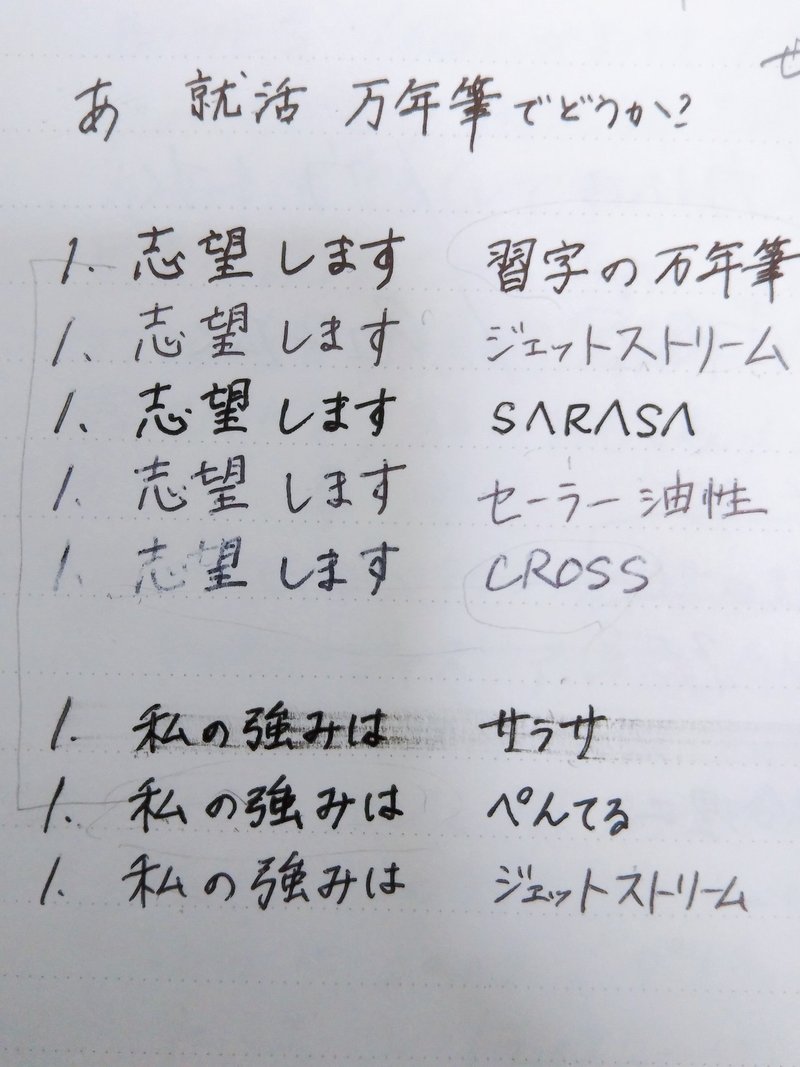 あ 就活 万年筆でどうか?
1. 志望します 習字の万年筆
1. 志望します ジェットストリーム
1. 志望します SARASA
1. 志望します セーラー油性
1. 志望します CROSS
1. 私の強みは サラサ
1. 私の強みは ぺんてる
1. 私の強みは ジェットストリーム